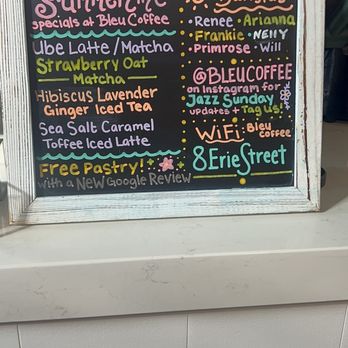 Summertime
specials at Bleu Coffee
Ube Latte/Matcha
Strawberry Oat
Matcha
Hibiscus Lavender
Ginger Iced Tea
Sea Salt Caramel
Toffee Iced Latte
Free Pastry!
with a New Google Review
• Renee • Arianna
• Frankie • Nelly
• Primrose • Will
@BLEUCOFFEE
on Instagram for
Jazz Sunday
updates + Tag us!
WiFi: Bleu
coffee
8 Erie Street